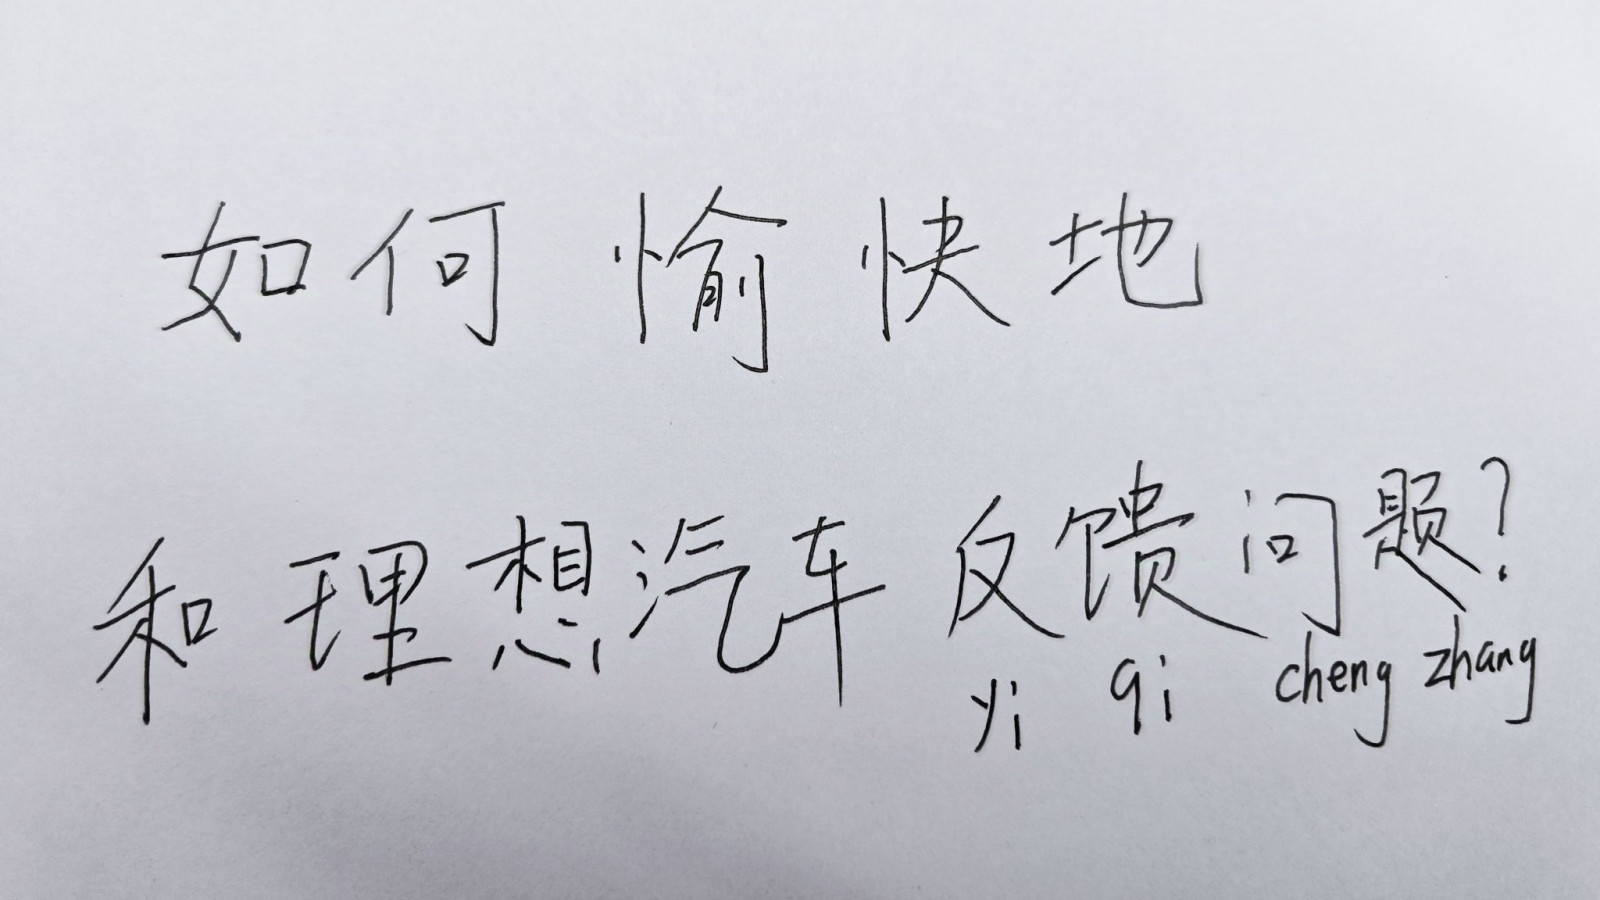 如何愉快地
和理想汽车反馈问题?
yi qi cheng zhang